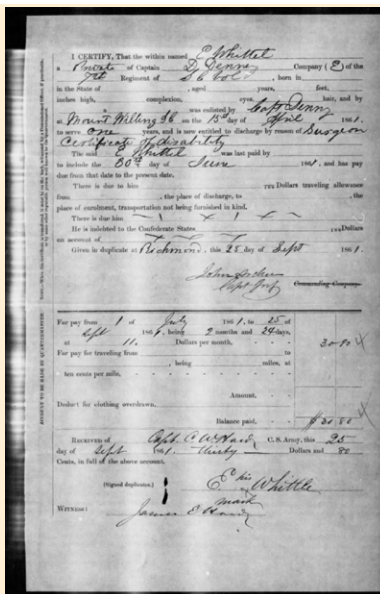 I CERTIFY, That the within named E Whittel
a Private of Captain D Denny Company (E) of the
Regiment of S C Vols, born in
in the State of , aged years, feet,
inches high, complexion, eyes, hair, and by
a was enlisted by Capt Denny
at Mount Willing SC on the 15th day of April 1861.
to serve one years, and is now entitled to discharge by reason of Surgeon
Certificate of disability
The said E Whittel was last paid by
to include the 30th day of June 1861, and has pay
due from that date to the present date.
There is due to him Dollars travelling allowance
from , the place of discharge, to , the
place of enrolment, transportation not being furnished in kind.
There is due him
He is indebted to the Confederate States Dollars
on account of
Given in duplicate at Richmond, this 25 day of Sept 1861.
Commanding Company.
ACCOUNT TO BE MADE BY QUARTERMASTER.
For pay from 1 of July 1861, to 25 of
Sept 1861, being 2 months and 24 days,
at 11. Dollars per month, 30 80
For pay for traveling from to
, being miles, at
ten cents per mile,
Amount,
Deduct for clothing overdrawn,
Balance paid, $30 80
RECEIVED of Capt. C W C. S. Army, this 25
day of Sept 1861. Thirty Dollars and 80
Cents, in full of the above account.
E his Whittle
(Signed duplicates.) mark
WITNESS:
James E